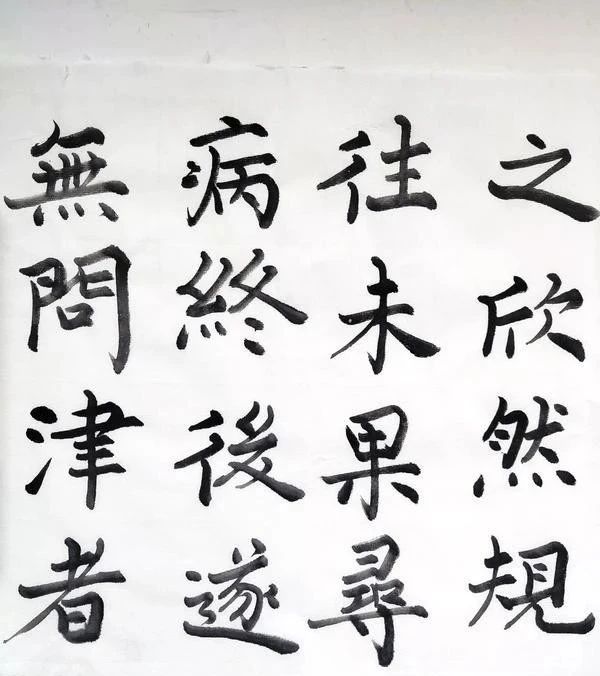 之欣然規
往未果尋
病終後遂
無問津者